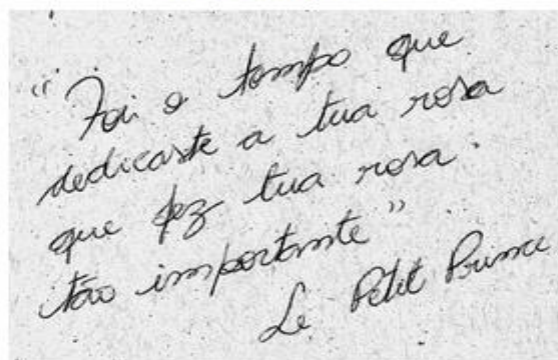 "Foi o tempo que
dedicaste a tua rosa
que fez tua rosa
tão importante"
Le Petit Prince